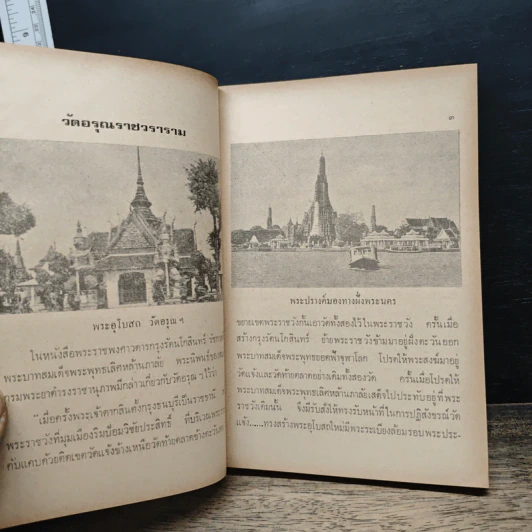 วัดอรุณราชวราราม
พระอุโบสถ วัดอรุณฯ
ในหนังสือพระราชพงศาวดารกรุงรัตนโกสินทร์ รัชกาล
พระบาทสมเด็จพระพุทธเลิศหล้านภาลัย พระนิพนธ์ของสมเด็จ
กรมพระยาดำรงราชานุภาพมีกล่าวเกี่ยวกับวัดอรุณฯ ไว้ว่า
"เมื่อครั้งพระเจ้าตากสินตั้งกรุงธนบุรีเป็นราชธานี
พระราชวังที่มุมเมืองริมป้อมวิชัยประสิทธิ์ ที่บริเวณพระราช
คับแคบด้วยติดเขตวัดแจ้งข้างเหนือวัดท้ายตลาดข้างตะวันออก
๓
พระปรางค์มองทางฝั่งพระนคร
ขยายเขตพระราชวังกั้นเอาวัดทั้งสองไว้ในพระราชวัง ครั้นเมื่อ
สร้างกรุงรัตนโกสินทร์ ย้ายพระราชวังข้ามมาอยู่ฝั่งตะวันออก
พระบาทสมเด็จพระพุทธยอดฟ้าจุฬาโลก โปรดให้พระสงฆ์มาอยู่
วัดแจ้งและวัดท้ายตลาดอย่างเดิมทั้งสองวัด ครั้นเมื่อโปรดให้
พระบาทสมเด็จพระพุทธเลิศหล้านภาลัยเสด็จไปประทับอยู่ที่พระ
ราชวังเดิมนั้น จึงมีรับสั่งให้ทรงรับหน้าที่ในการปฏิสังขรณ์วัด
แจ้ง......ทรงสร้างพระอุโบสถใหม่มีพระระเบียงล้อมรอบพระประ-